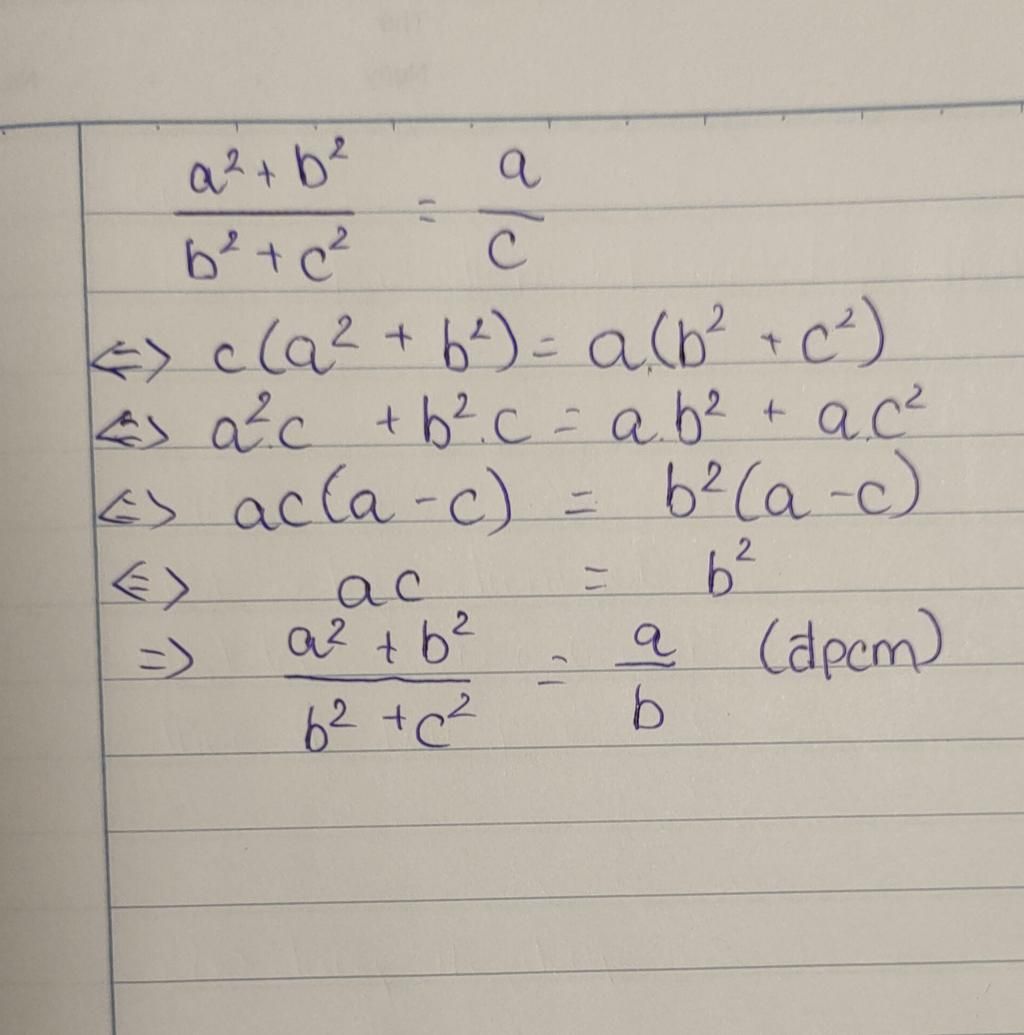 a² + b² / b² + c² = a / c
<=> c(a² + b²) = a.(b² + c²)
<=> a².c + b².c = a.b² + a.c²
<=> ac(a - c) = b²(a - c)
<=> ac = b²
=> a² + b² / b² + c² = a / b (dpcm)